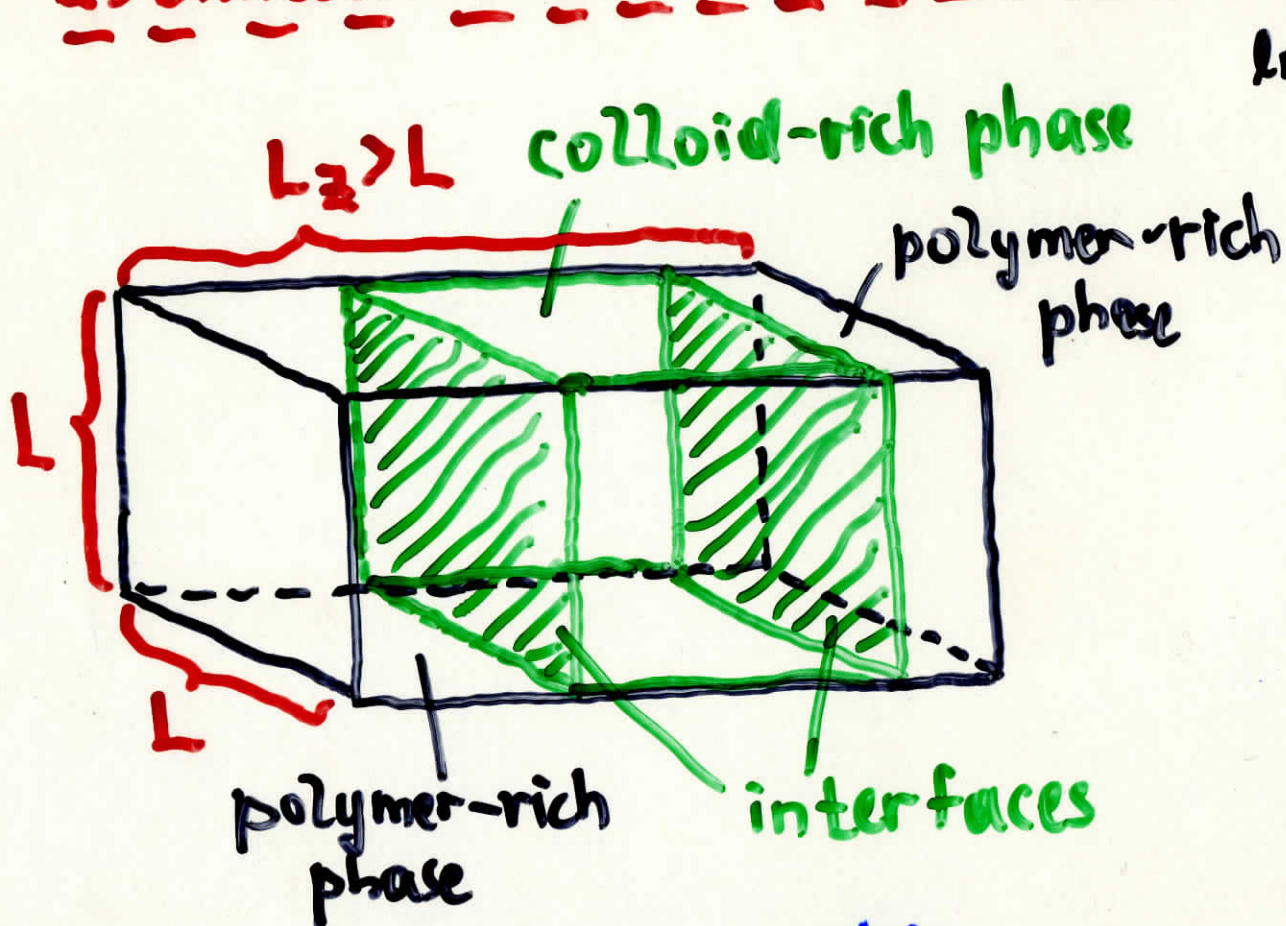 colloid-rich phase
L_z>L
polymer-rich
phase
L
L
polymer-rich
phase
interfaces